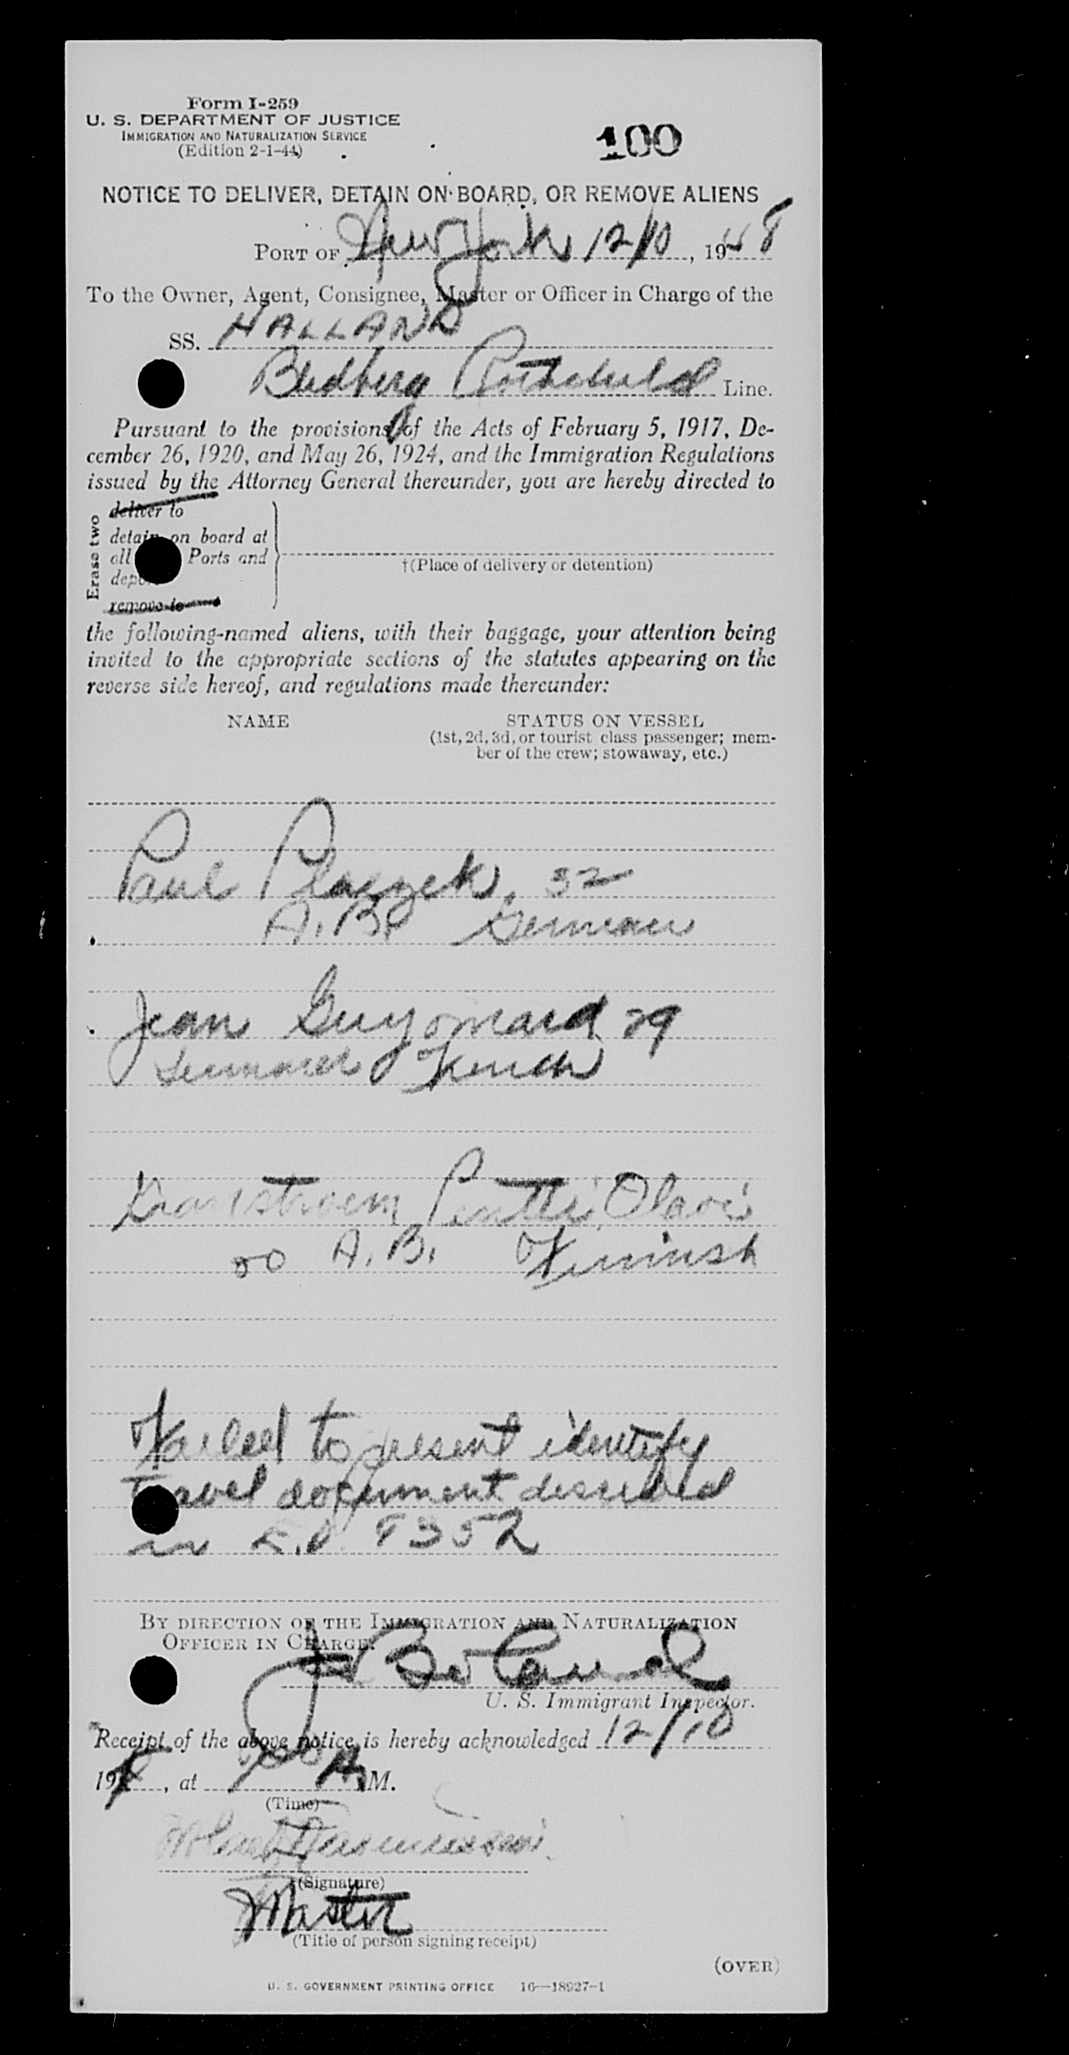 Form I-259
U. S. DEPARTMENT OF JUSTICE
IMMIGRATION AND NATURALIZATION SERVICE
(Edition 2-1-44)
100
NOTICE TO DELIVER, DETAIN ON BOARD, OR REMOVE ALIENS
PORT OF New York 12/10, 1948
To the Owner, Agent, Consignee, Master or Officer in Charge of the
SS. HALLAND
Rothchild Line.
Pursuant to the provisions of the Acts of February 5, 1917, De-
cember 26, 1920, and May 26, 1924, and the Immigration Regulations
issued by the Attorney General thereunder, you are hereby directed to
Erase two
deliver to
detain on board at
all Ports and
remove to
†(Place of delivery or detention)
the following-named aliens, with their baggage, your attention being
invited to the appropriate sections of the statutes appearing on the
reverse side hereof, and regulations made thereunder:
NAME
STATUS ON VESSEL
(1st, 2d, 3d, or tourist class passenger; mem-
ber of the crew; stowaway, etc.)
Paul Placzek, 32
A.B. German
Jean Guyomard 29
French
Pentti Olavi
A.B. Finnish
Failed to present identify
travel document described
in E.O. 8352
BY DIRECTION OF THE IMMIGRATION AND NATURALIZATION
OFFICER IN CHARGE.
J Boland
U. S. Immigrant Inspector.
Receipt of the above notice is hereby acknowledged 12/10
19 , at A M.
(Time)
Rasmussen.
(Signature)
Master
(Title of person signing receipt)
(OVER)
U. S. GOVERNMENT PRINTING OFFICE 16—18927-1